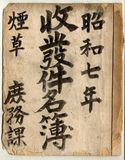 昭和七年
收發件名簿
煙草 庶務課